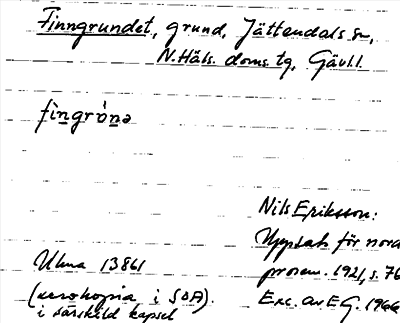 Finngrundet, grund, Jättendals sn,
N. Häls. doms. tg, Gävl.l.
fìngrónə
Nils Eriksson:
Uppsats för nord.
prosem. 1921, s. 76
Exc. av E G. 1966
Ulma 13861
(xerokopia i SOA).
i särskild kapsel